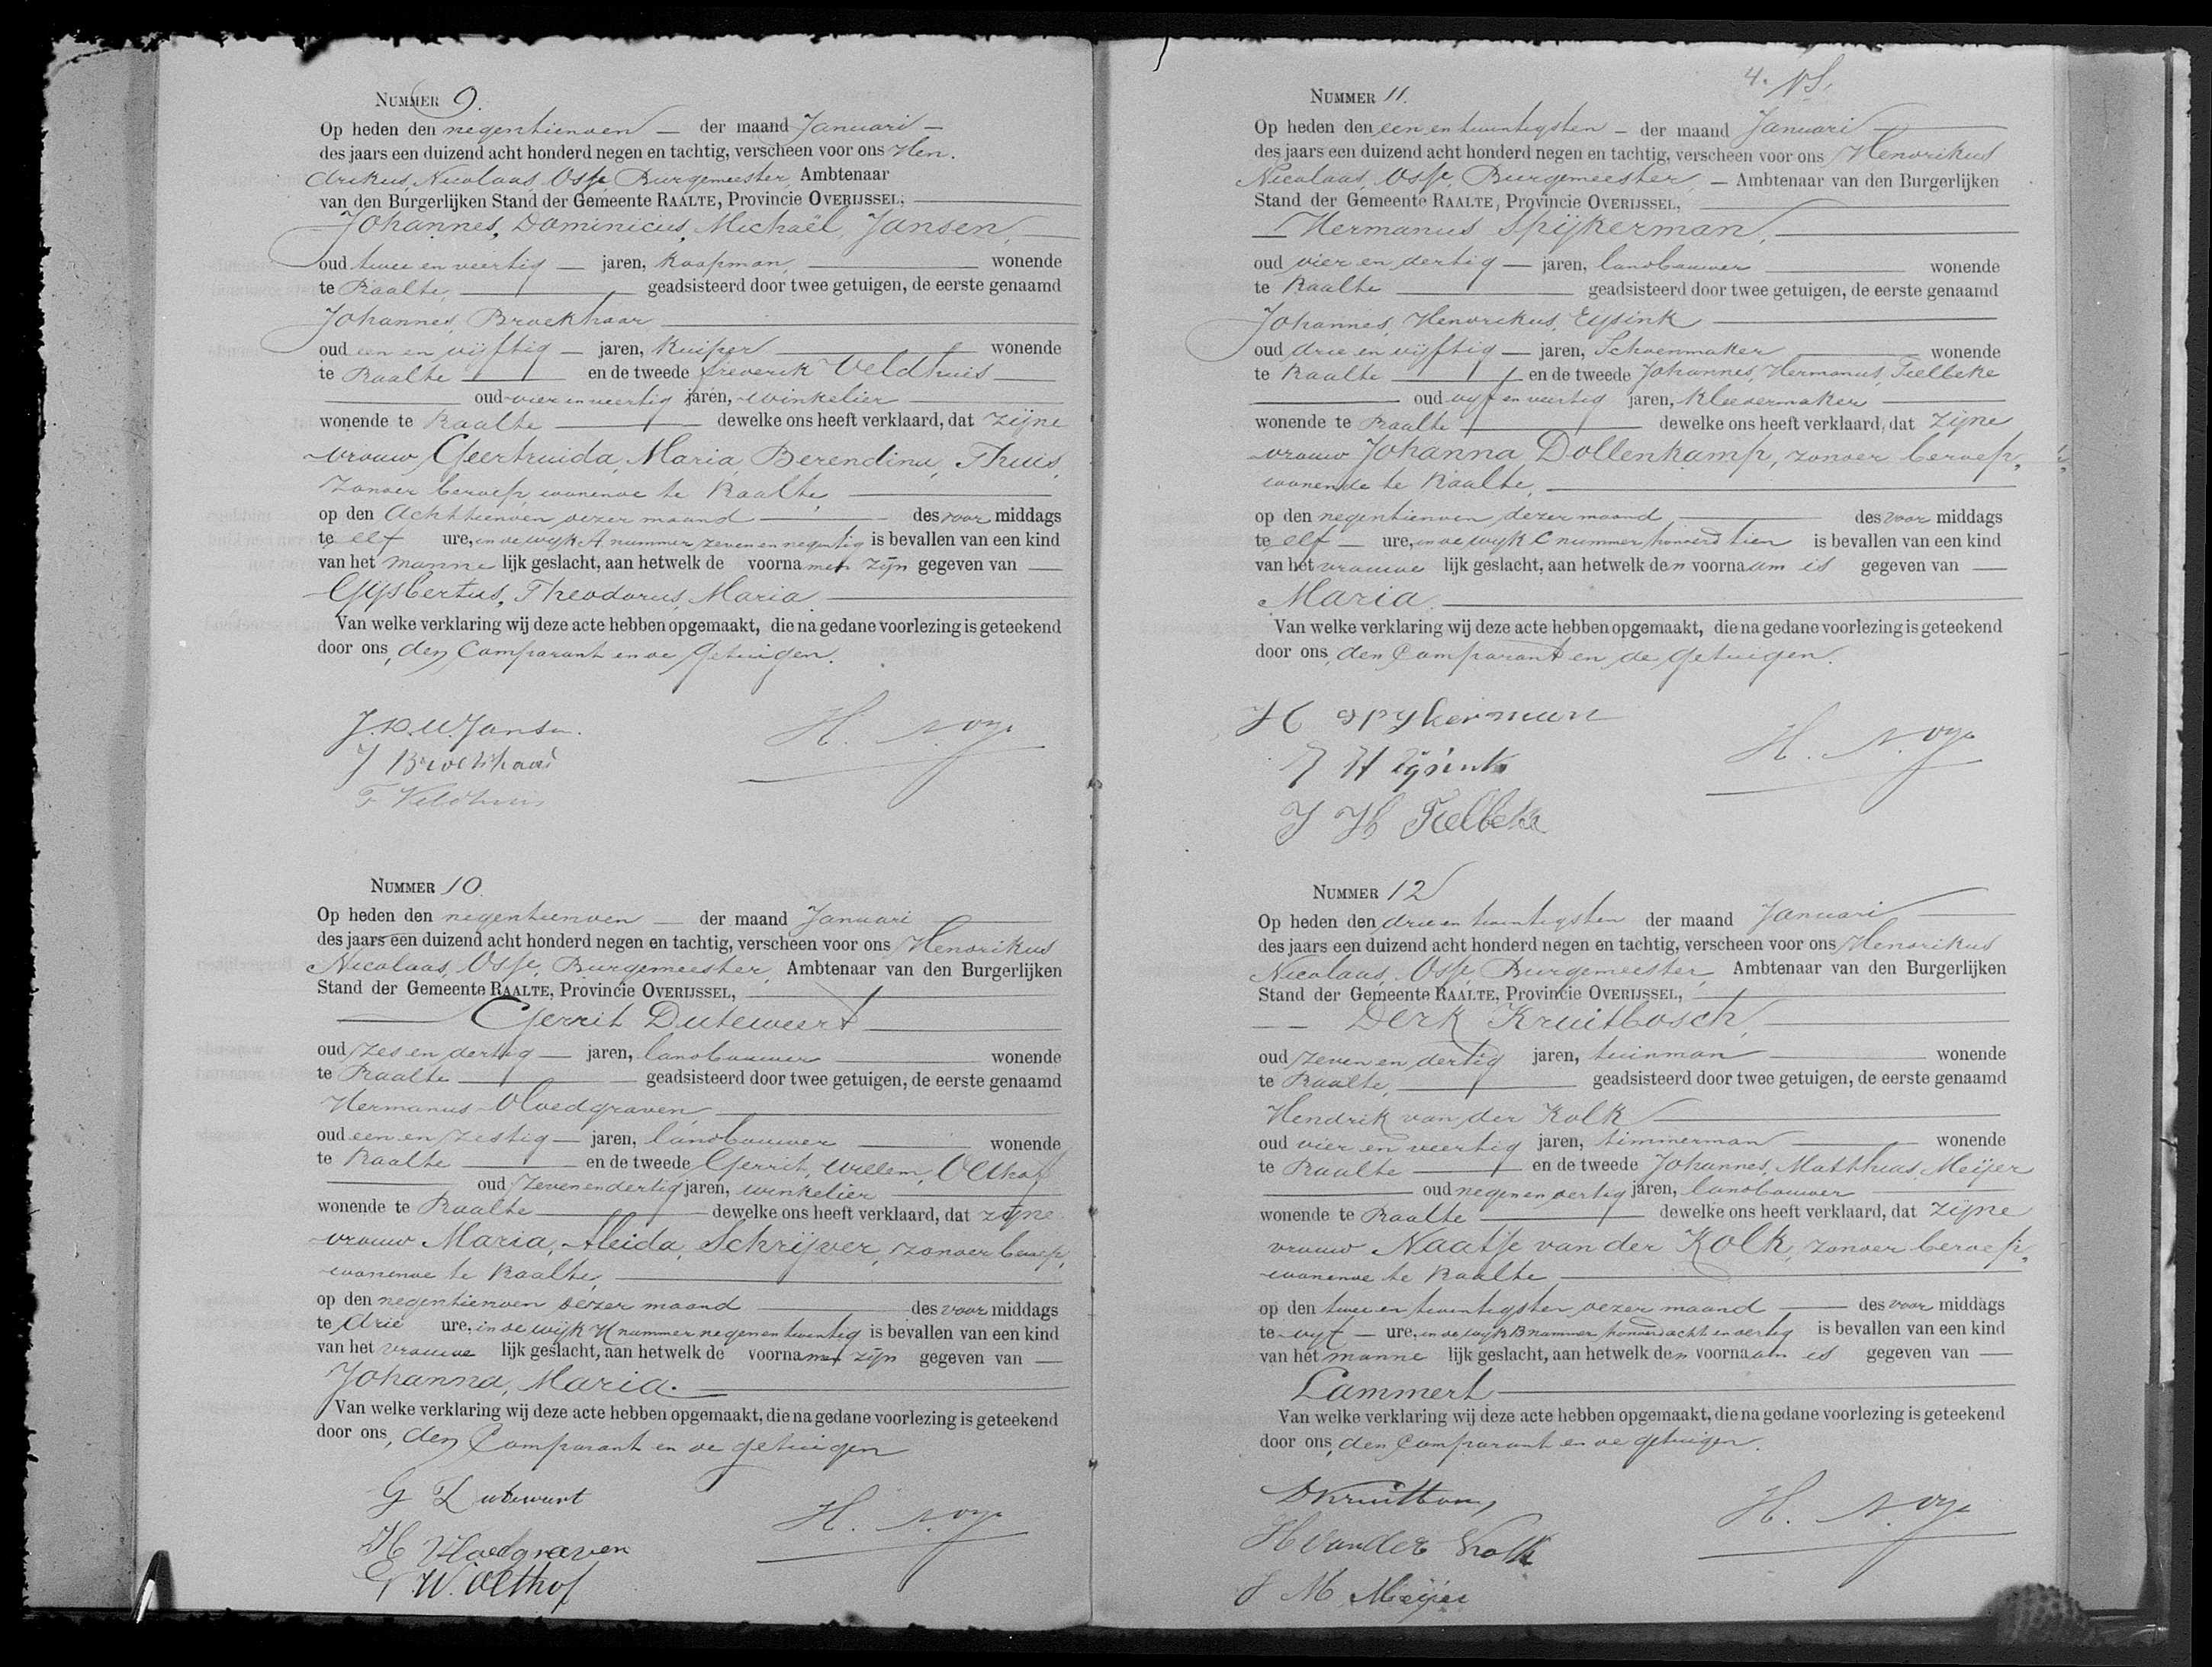 NUMMER 9.
Op heden den negentienden — der maand Januari —
des jaars een duizend acht honderd negen en tachtig, verscheen voor ons Hen.
drikus, Nicolaas, Osse, Burgemeester, Ambtenaar
van den Burgerlijken Stand der Gemeente RAALTE, Provincie OVERIJSSEL,
Johannes, Dominicus, Michaël, Jansen,
oud twee en veertig — jaren, Koopman, wonende
te Raalte, geadsisteerd door twee getuigen, de eerste genaamd
Johannes, Broekhaar
oud een en vijftig — jaren, Kuiper wonende
te Raalte en de tweede frederik Veldhuis
oud vier en veertig jaren, winkelier
wonende te Raalte dewelke ons heeft verklaard, dat zijne
vrouw Geertruida, Maria Berendina, Thuis,
zonder beroep, wonende te Raalte,
op den Achttienden dezer maand des voor middags
te elf ure, in de wijk A nummer zeven en negentig is bevallen van een kind
van het manne lijk geslacht, aan hetwelk de voornamen zijn gegeven van —
Gijsbertus, Theodorus, Maria.
Van welke verklaring wij deze acte hebben opgemaakt, die na gedane voorlezing is geteekend
door ons, den Comparant en de getuigen.
J. D. M. Jansen.
J Broekhaar
F Veldhuis
NUMMER 10.
Op heden den negentienden — der maand Januari
des jaars een duizend acht honderd negen en tachtig, verscheen voor ons Hendrikus
Nicolaas, Osse, Burgemeester, Ambtenaar van den Burgerlijken
Stand der Gemeente RAALTE, Provincie OVERIJSSEL,
Gerrit Duteweert
oud zes en dertig — jaren, landbouwer wonende
te Raalte geadsisteerd door twee getuigen, de eerste genaamd
Hermanus Vloedgraven
oud een en zestig — jaren, landbouwer wonende
te Raalte en de tweede Gerrit, Willem, Olthof
oud zeven en dertig jaren, winkelier
wonende te Raalte dewelke ons heeft verklaard, dat zijne
vrouw Maria, Aleida, Schrijver, zonder beroep,
wonende te Raalte,
op den negentienden dezer maand des voor middags
te drie ure, in de wijk H nummer negen en twintig is bevallen van een kind
van het vrouwe lijk geslacht, aan hetwelk de voornamen zijn gegeven van —
Johanna, Maria.
Van welke verklaring wij deze acte hebben opgemaakt, die na gedane voorlezing is geteekend
door ons, den Comparant en de getuigen
G Dutewert
H Vloedgraven
G W. Olthof
4.
NUMMER 11.
Op heden den een en twintigsten — der maand Januari
des jaars een duizend acht honderd negen en tachtig, verscheen voor ons Hendrikus
Nicolaas, Osse, Burgemeester, — Ambtenaar van den Burgerlijken
Stand der Gemeente RAALTE, Provincie OVERIJSSEL,
Hermanus Spijkerman,
oud vier en dertig — jaren, landbouwer wonende
te Raalte geadsisteerd door twee getuigen, de eerste genaamd
Johannes, Hendrikus, Eysink
oud drie en vijftig — jaren, Schoenmaker wonende
te Raalte en de tweede Johannes, Hermanus, Fielbeke
oud vyf en veertig jaren, Kleedermaker
wonende te Raalte dewelke ons heeft verklaard, dat zijne
vrouw Johanna Dollenkamp, zonder beroep,
wonende te Raalte,
op den negentienden dezer maand des voor middags
te elf — ure, in de wijk C nummer honderd tien is bevallen van een kind
van het vrouwe lijk geslacht, aan hetwelk den voornaam is gegeven van —
Maria.
Van welke verklaring wij deze acte hebben opgemaakt, die na gedane voorlezing is geteekend
door ons, den Comparant en de getuigen.
H spykerman
J H Eysink
J H Fielbeke
NUMMER 12
Op heden den drie en twintigsten der maand Januari
des jaars een duizend acht honderd negen en tachtig, verscheen voor ons Hendrikus
Nicolaas, Osse, Burgemeester, Ambtenaar van den Burgerlijken
Stand der Gemeente RAALTE, Provincie OVERIJSSEL,
Derk Kruitbosch,
oud zeven en dertig jaren, tuinman wonende
te Raalte, geadsisteerd door twee getuigen, de eerste genaamd
Hendrik van der Kolk
oud vier en veertig jaren, timmerman wonende
te Raalte en de tweede Johannes, Matthias, Meijer
oud negen en dertig jaren, landbouwer
wonende te Raalte dewelke ons heeft verklaard, dat zijne
vrouw Naatje van der Kolk, zonder beroep,
wonende te Raalte,
op den twee en twintigsten dezer maand — des voor middags
te vyf — ure, in de wyk B nummer honderd acht en dertig is bevallen van een kind
van het manne lijk geslacht, aan hetwelk den voornaam is gegeven van —
Lammert
Van welke verklaring wij deze acte hebben opgemaakt, die na gedane voorlezing is geteekend
door ons, den Comparant en de getuigen.
H van der Kolk
J M Meijer